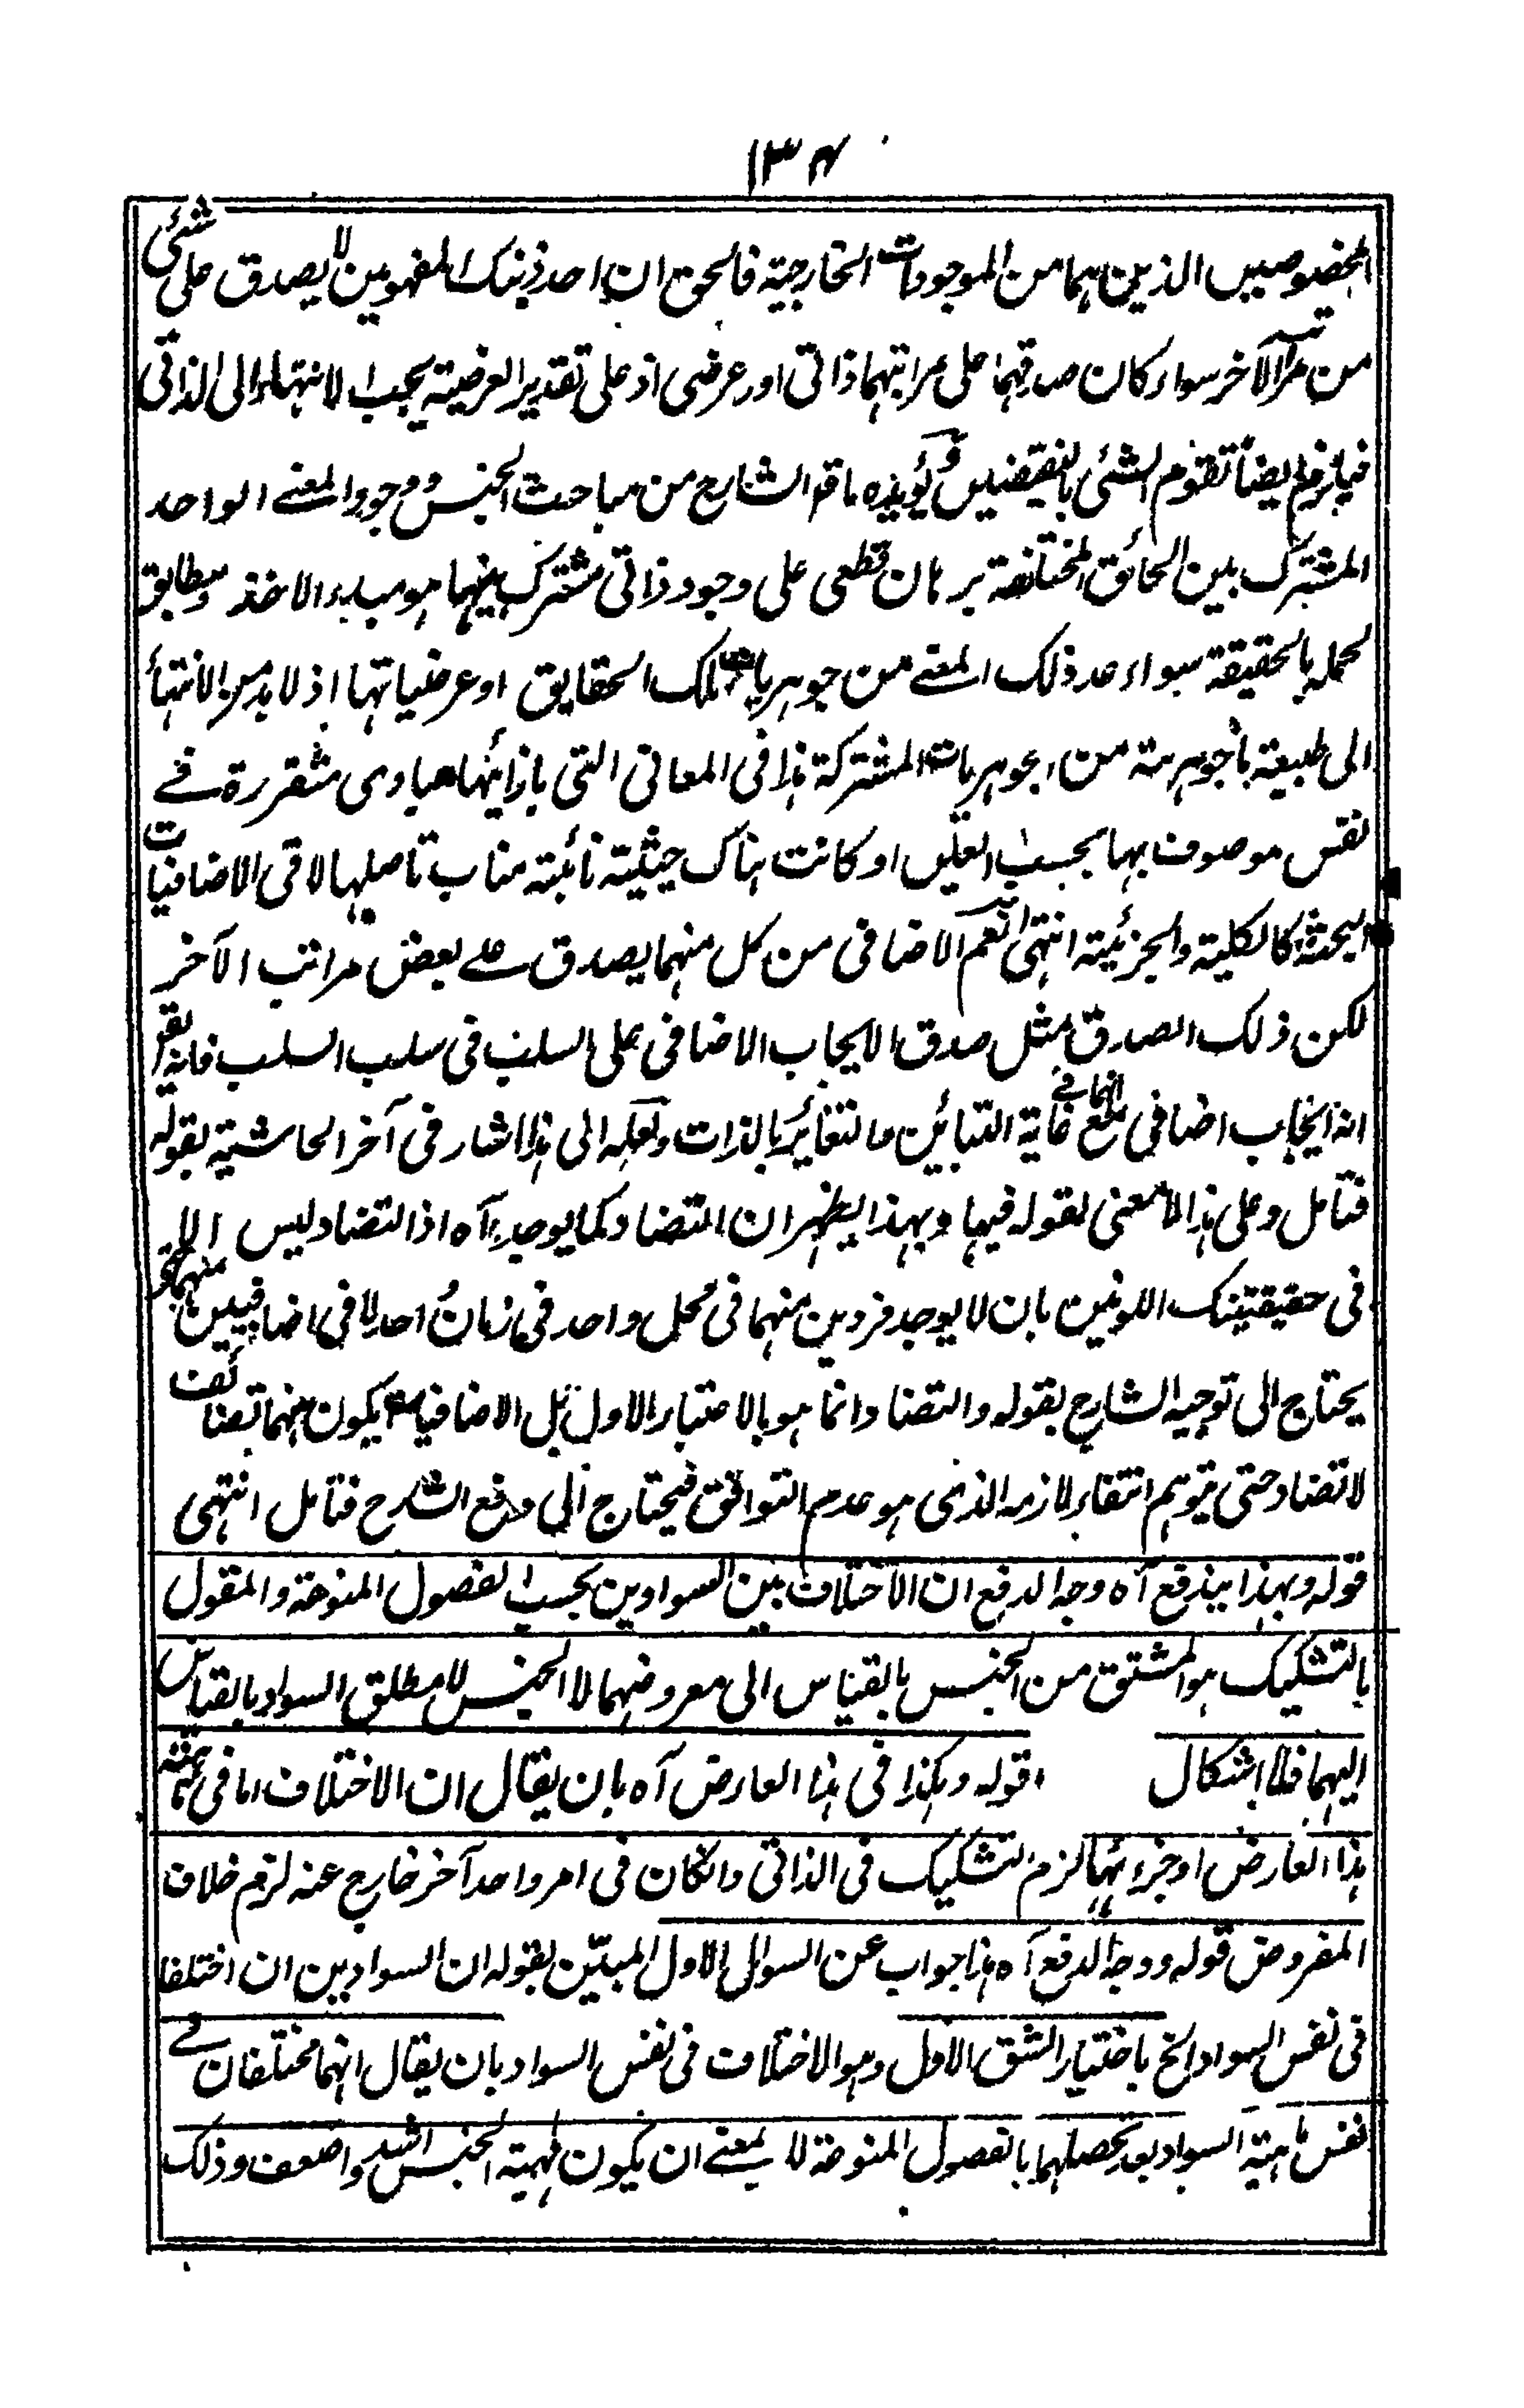 ١٣٤
المخصوصين الذين هما من الموجودات الخارجية فالحق ان احد ذينك المفهومين لا يصدق على شئ
من مراتب الآخر سواء كان صدقهما على مراتبهما ذاتى او عرضى اذ على تقدير العرضية يجب الانتهاء الى الذاتى
فيلزم ايضاً تقوم الشئ بالنقيضين ويؤيده ما قال الشارح من مباحث الجنس وجود المعنے الواحد
المشترك بين الحقائق المختلفة برهان قطعى على وجود ذاتى مشترك بينهما هو مبدء الاخذ ومطابق
لحمله بالحقيقة سواء عد ذلك المعنے من جوهريات تلك الحقايق او عرضياتها اذ لا بد من الانتهأ
الى طبيعة ما جوهرية من الجوهريات المشتركة هذا فى المعانى التى بازائها مبادى متقررة فے
نفس موصوف بها بحسب العين او كانت هناك حيثية نائبة مناب تاصلها لا فى الاضافيات
البحتة كالكلية والجزئية انتهى نعم الاضافى من كل منهما يصدق علے بعض مراتب الآخر
لكن ذلك الصدق مثل صدق الايجاب الاضافى على السلب فى سلب السلب فانه يقر
انه ايجاب اضافى مع انهما فے غاية التبائن والتغائر بالذات ولعله الى هذا اشار فى آخر الحاشية بقوله
فتامل وعلى هذا لا معنى لقوله فيها وبهذا يظهر ان التضاد كما يوجد آه اذ التضاد ليس الا
فى حقيقتينك اللونين بان لا يوجد فردين منهما فى محل واحد فى زمان واحد لا فى اضافيين منهما
يحتاج الى توجيه الشارح بقوله والتضاد انما هو بالاعتبار الاول بل الاضافيان يكون بينهما تضائف
لا تضاد حتى يتوهم انتفاء لازمه الذى هو عدم التوافق فيحتاج الى دفع الشارح فتامل انتهى
قوله وبهذا يندفع آه وجه الدفع ان الاختلاف بين السوادين بحسب الفصول المنوعة والمقول
بالتشكيك هو المشتق من الجنس بالقياس الى معروضهما لا الجنس للمطلق السواد بالقياس
اليهما فلا اشكال قوله وهكذا فى هذا العارض آه بان يقال ان الاختلاف اما فى
هذا العارض او جزئهما لزم التشكيك فى الذاتى وانكان فى امر واحد آخر خارج عنه لزم خلاف
المفروض قوله ووجه الدفع آه هذا جواب عن السوال الاول المبيّن بقوله ان السوادين ان اختلفا
فى نفس السواد الخ باختيار الشق الاول وهو الاختلاف فى نفس السواد بان يقال انهما مختلفان فے
نفس ماهية السواد بعد تحصلهما بالفصول المنوعة لا بمعنے ان يكون ماهية الجنس اشد واضعف وذلك